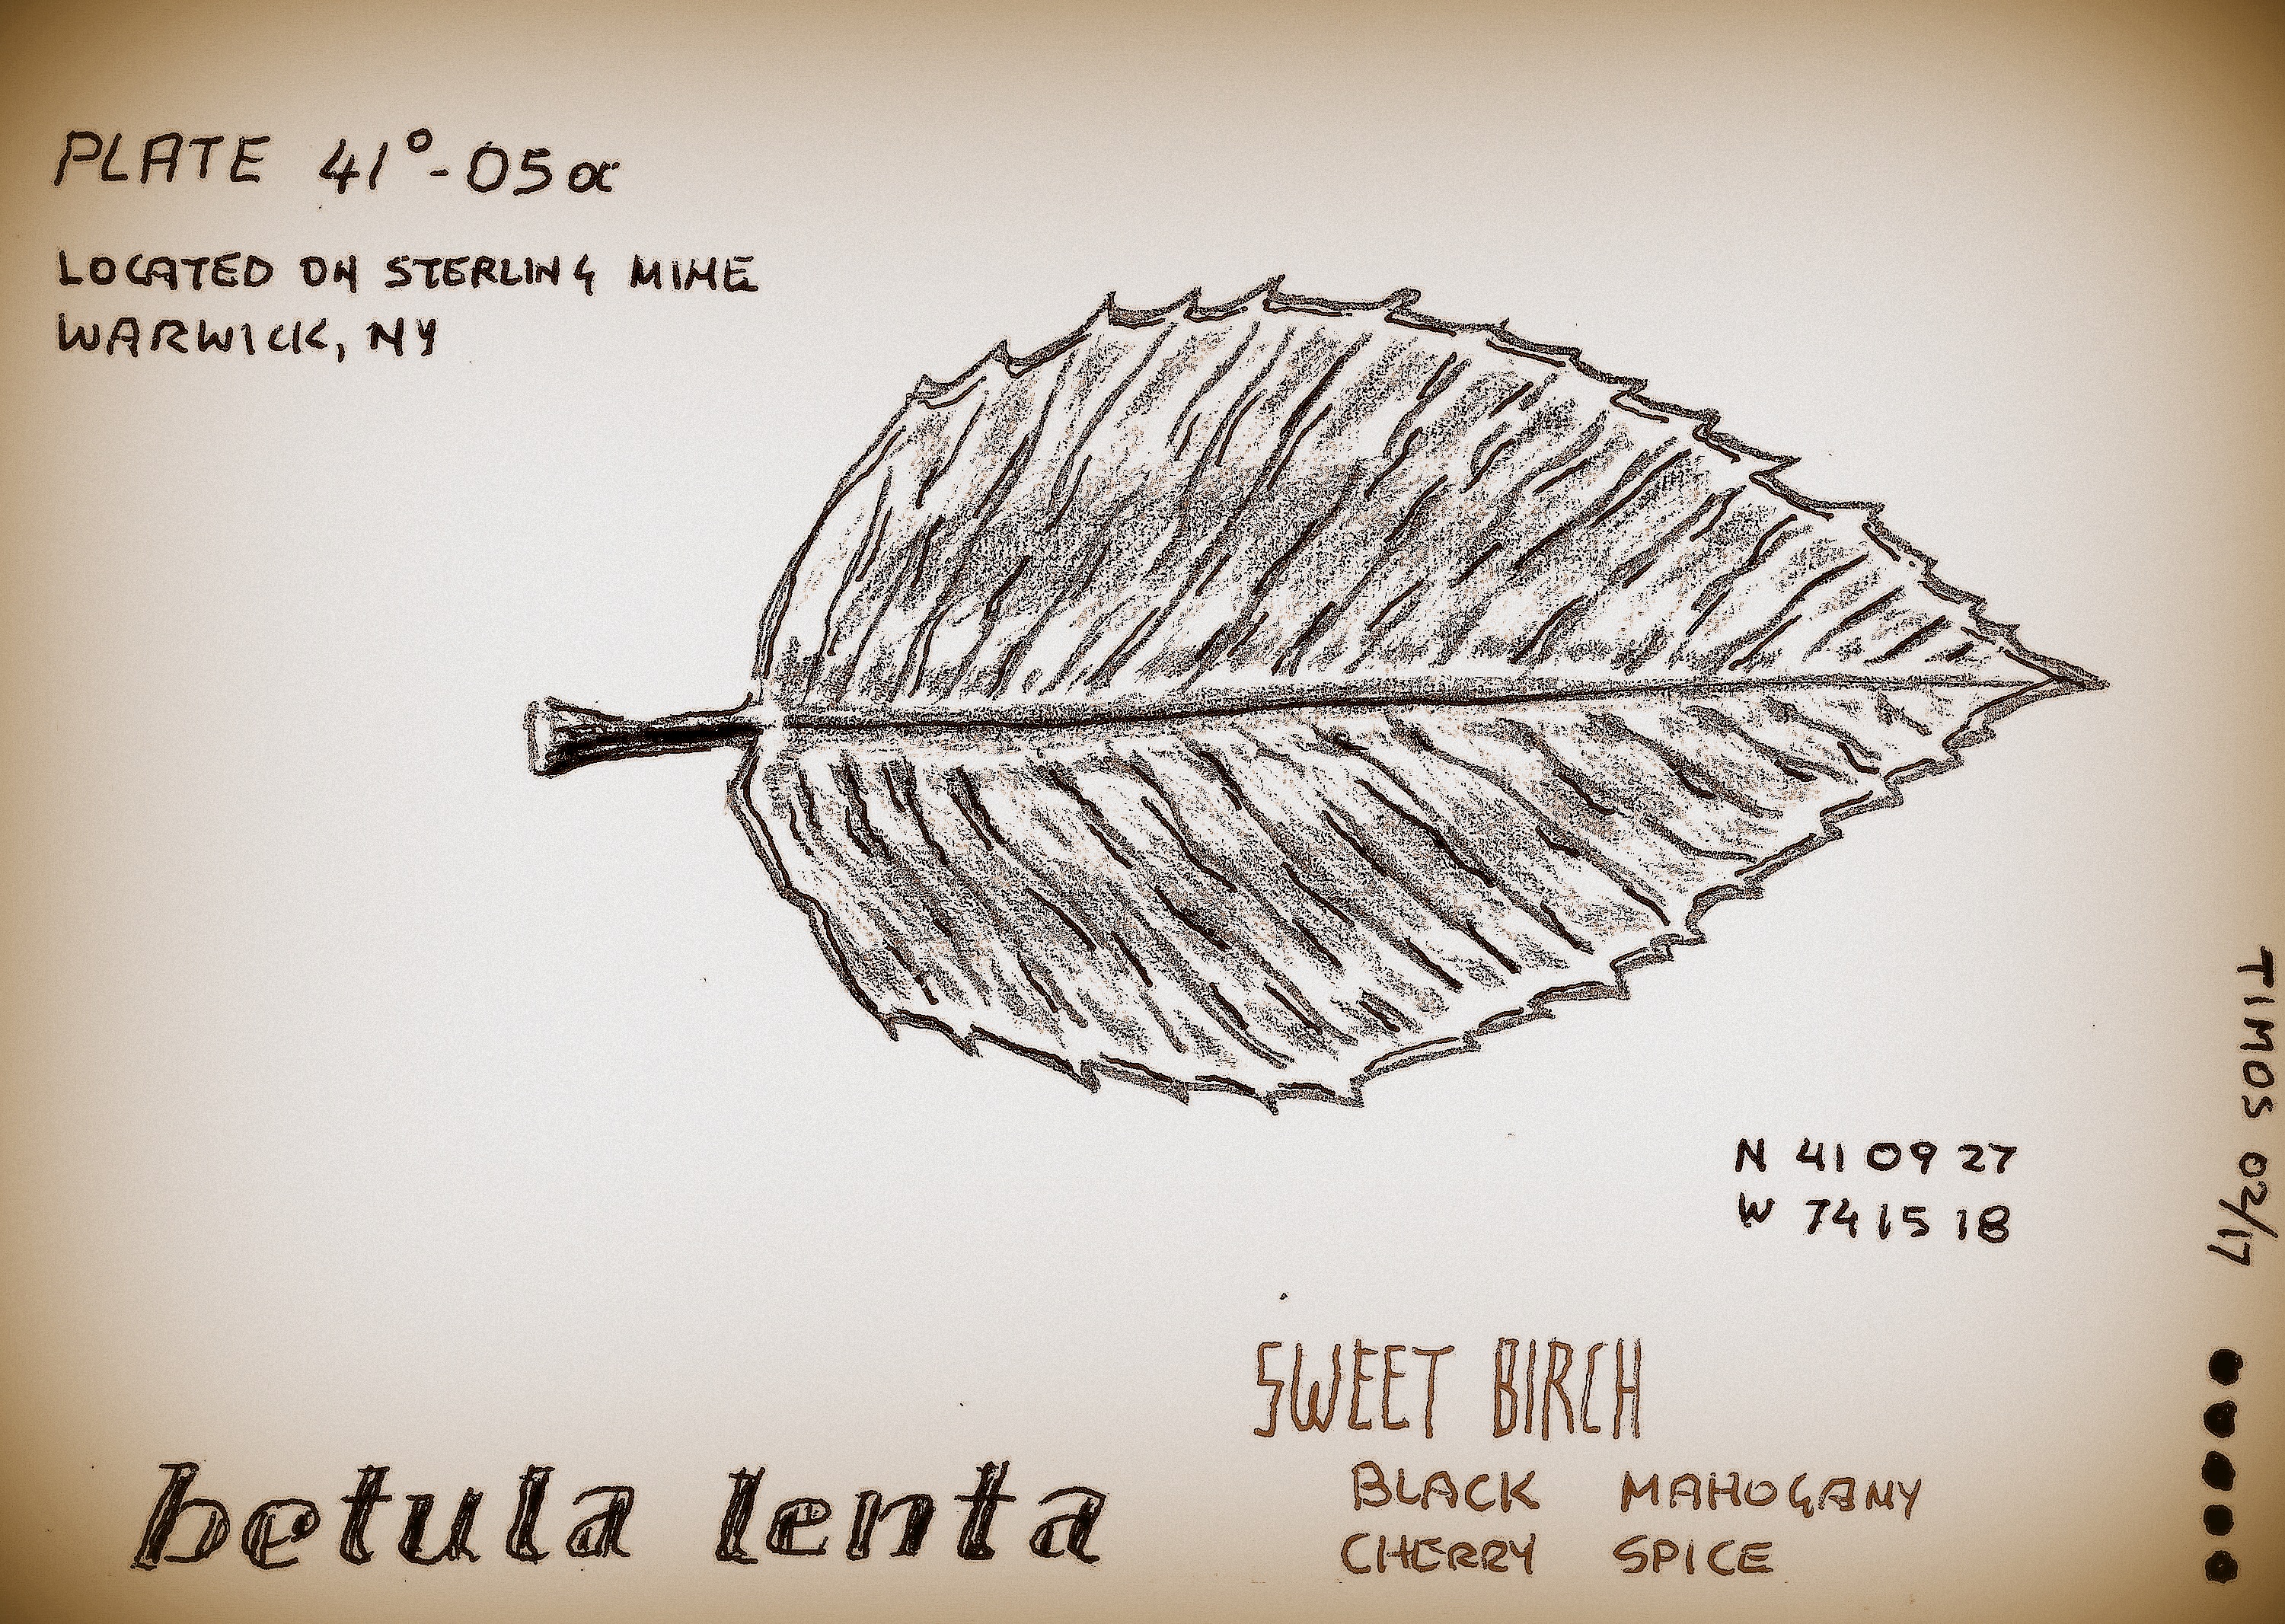 PLATE 41°-05α
LOCATED ON STERLING MINE
WARWICK, NY
N 41 09 27
W 74 15 18
TIMOS 02/17
SWEET BIRCH
BLACK MAHOGANY
CHERRY SPICE
betula lenta